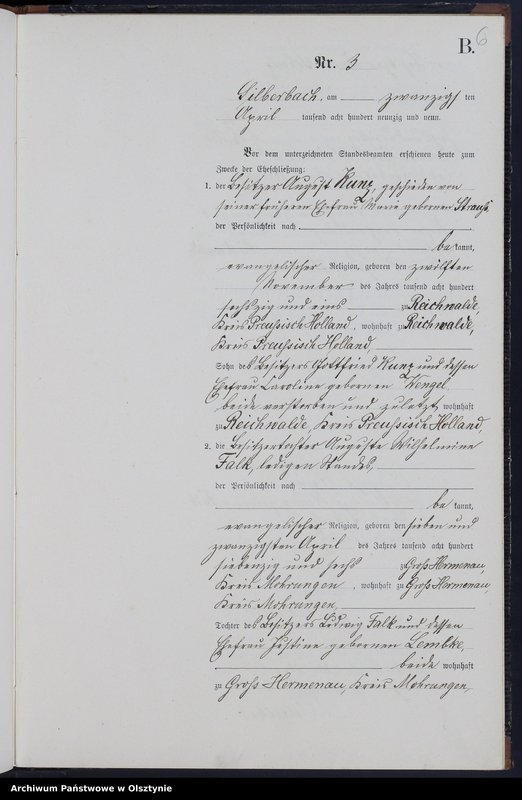 B. 6
Nr. 3
Silberbach, am zwanzigsten ten
April tausend acht hundert neunzig und neun.
Vor dem unterzeichneten Standesbeamten erschienen heute zum
Zwecke der Eheschließung:
1. der Besitzer August Kunz, geschieden von
seiner früheren Ehefrau Marie geborenen Strauß,
der Persönlichkeit nach
be kannt,
evangelischer Religion, geboren den zwölften
November des Jahres tausend acht hundert
sechszig und eins zu Reichwalde,
Kreis Preußisch Holland, wohnhaft zu Reichwalde,
Kreis Preußisch Holland,
Sohn des Besitzers Gottfried Kunz und dessen
Ehefrau Caroline geborenen Wenzel
beide verstorben und zuletzt wohnhaft
zu Reichwalde, Kreis Preußisch Holland,
2. die Besitzertochter Auguste Wilhelmine
Falk, ledigen Standes,
der Persönlichkeit nach
be kannt,
evangelischer Religion, geboren den sieben und
zwanzigsten April des Jahres tausend acht hundert
siebenzig und sechs zu Groß Hermenau,
Kreis Mohrungen, wohnhaft zu Groß Hermenau,
Kreis Mohrungen,
Tochter des Besitzers Ludwig Falk und dessen
Ehefrau Justine geborenen Lembke,
beide wohnhaft
zu Groß Hermenau, Kreis Mohrungen,
Archiwum Państwowe w Olsztynie